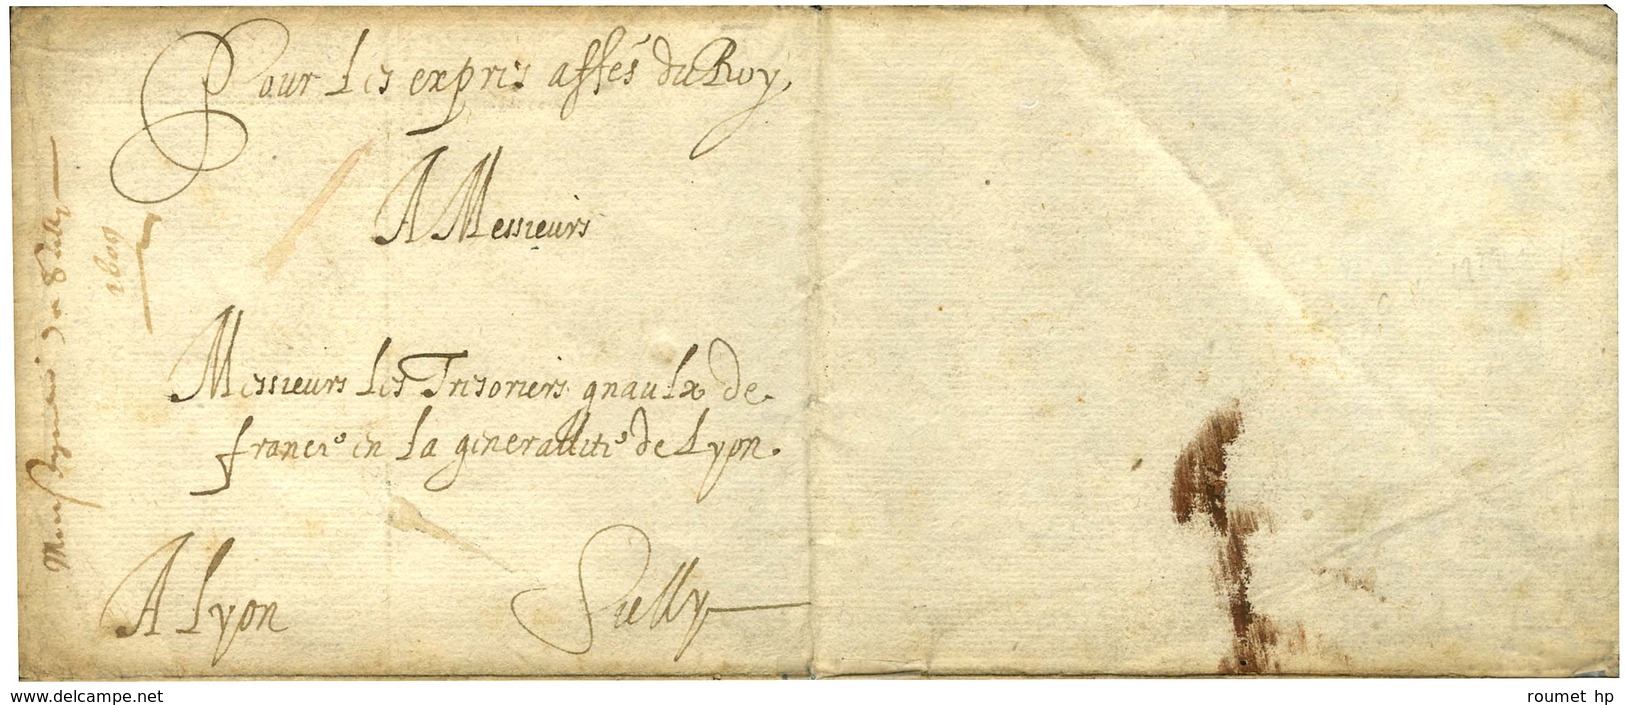 Pour les expres affes du Roy,
A Messieurs
Messieurs les Tresoriers gnaulx de
france en la generallite de Lyon.
A Lyon
Sully
Monseigneur de Sully
1609
www.delcampe.net
roumet hp